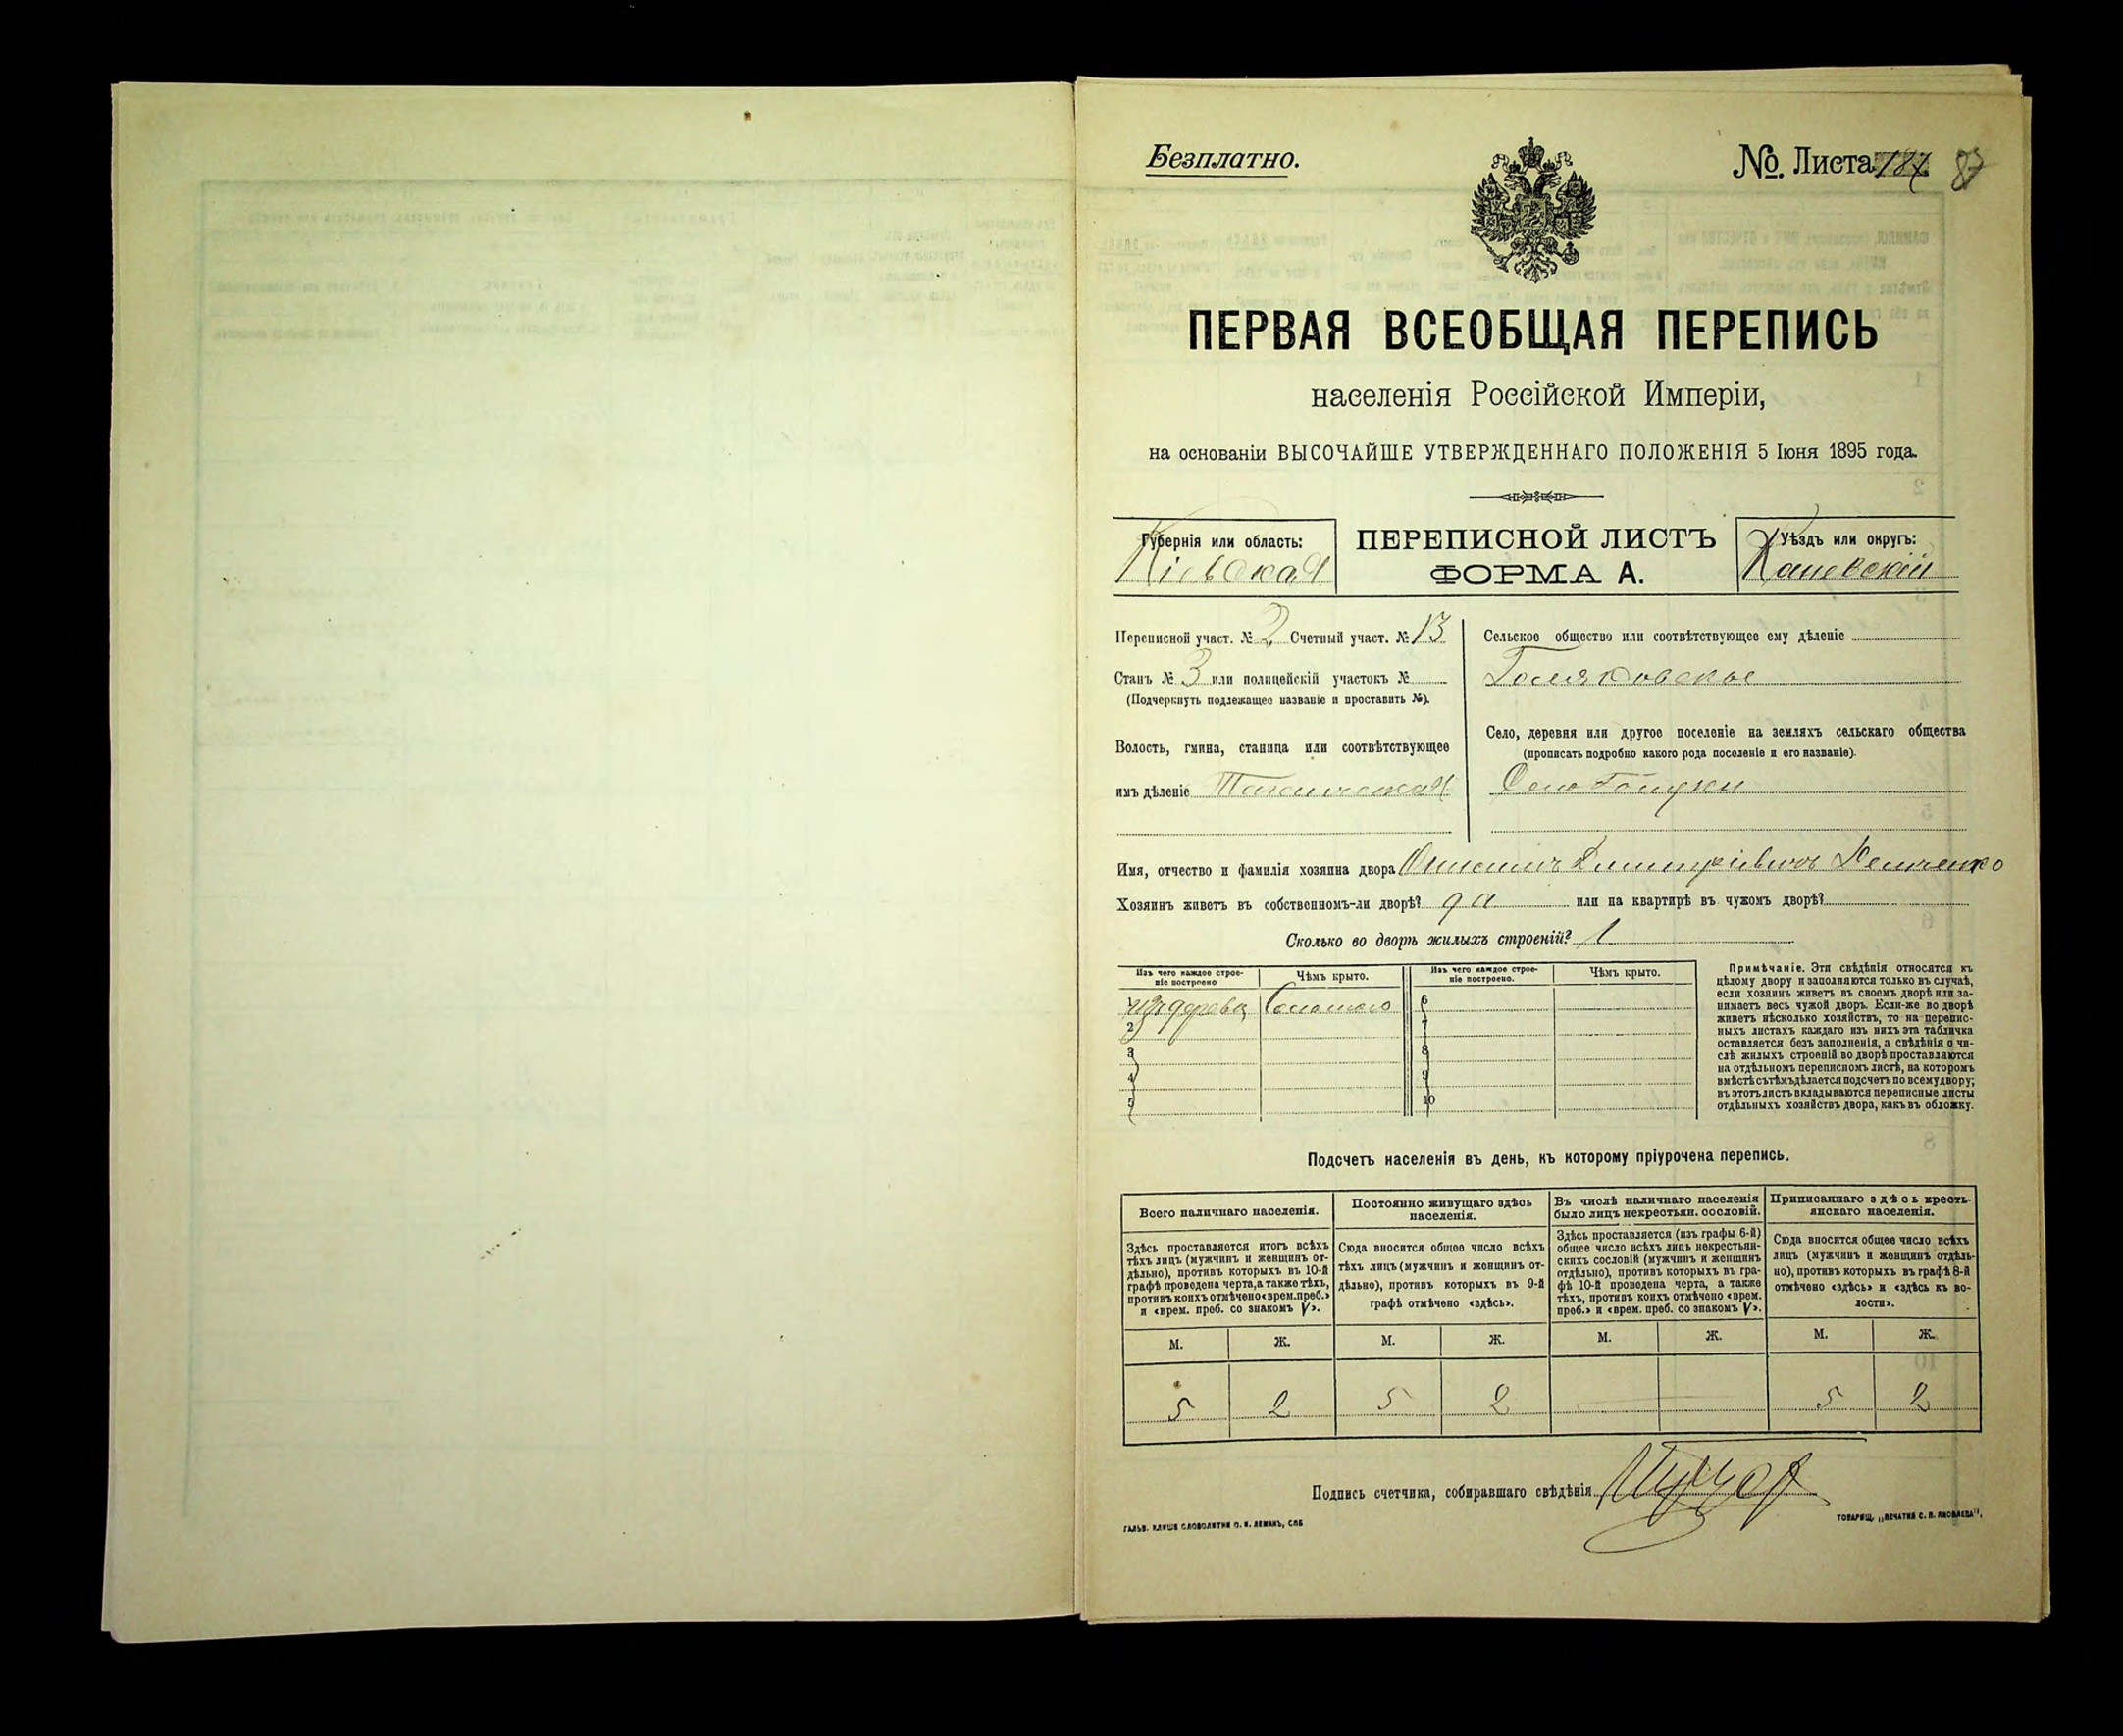 Безплатно.
№. Листа 187 87
ПЕРВАЯ ВСЕОБЩАЯ ПЕРЕПИСЬ
населенія Россійской Имперіи,
на основаніи ВЫСОЧАЙШЕ УТВЕРЖДЕННАГО ПОЛОЖЕНІЯ 5 Іюня 1895 года.
Губернія или область:
Кіевская
ПЕРЕПИСНОЙ ЛИСТЪ
ФОРМА А.
Уѣздъ или округъ:
Каневскій
Переписной участ. № 2 Счетный участ. № 13
Станъ № 3 или полицейскій участокъ №
(Подчеркнуть подлежащее названіе и проставить №).
Волость, гмина, станица или соотвѣтствующее
имъ дѣленіе
Сельское общество или соотвѣтствующее ему дѣленіе
Село, деревня или другое поселеніе на земляхъ сельскаго общества
(прописать подробно какого рода поселеніе и его названіе).
Село
Имя, отчество и фамилія хозяина двора Димитріевичъ
Хозяинъ живетъ въ собственномъ-ли дворѣ? да или на квартирѣ въ чужомъ дворѣ?
Сколько во дворѣ жилыхъ строеній? 1
Изъ чего каждое строе-
ніе построено
Чѣмъ крыто.
Изъ чего каждое строе-
ніе построено.
Чѣмъ крыто.
1 изъ дерева Соломою 6
2 7
3 8
4 9
5 10
Примѣчаніе. Эти свѣдѣнія относятся къ
цѣлому двору и заполняются только въ случаѣ,
если хозяинъ живетъ въ своемъ дворѣ или за-
нимаетъ весь чужой дворъ. Если-же во дворѣ
живетъ нѣсколько хозяйствъ, то на перепис-
ныхъ листахъ каждаго изъ нихъ эта табличка
оставляется безъ заполненія, а свѣдѣнія о чи-
слѣ жилыхъ строеній во дворѣ проставляются
на отдѣльномъ переписномъ листѣ, на которомъ
вмѣстѣ съ тѣмъ дѣлается подсчетъ по всему двору;
въ этотъ листъ вкладываются переписные листы
отдѣльныхъ хозяйствъ двора, какъ въ обложку.
Подсчетъ населенія въ день, къ которому пріурочена перепись.
Всего наличнаго населенія.
Постоянно живущаго здѣсь
населенія.
Въ числѣ наличнаго населенія
было лицъ некрестьян. сословій.
Приписаннаго здѣсь кресть-
янскаго населенія.
Здѣсь проставляется итогъ всѣхъ
тѣхъ лицъ (мужчинъ и женщинъ от-
дѣльно), противъ которыхъ въ 10-й
графѣ проведена черта, а также тѣхъ,
противъ коихъ отмѣчено «врем. преб.»
и «врем. преб. со знакомъ V».
Сюда вносится общее число всѣхъ
тѣхъ лицъ (мужчинъ и женщинъ от-
дѣльно), противъ которыхъ въ 9-й
графѣ отмѣчено «здѣсь».
Здѣсь проставляется (изъ графы 6-й)
общее число всѣхъ лицъ некрестьян-
скихъ сословій (мужчинъ и женщинъ
отдѣльно), противъ которыхъ въ гра-
фѣ 10-й проведена черта, а также
тѣхъ, противъ коихъ отмѣчено «врем.
преб.» и «врем. преб. со знакомъ V».
Сюда вносится общее число всѣхъ
лицъ (мужчинъ и женщинъ отдѣль-
но), противъ которыхъ въ графѣ 8-й
отмѣчено «здѣсь» и «здѣсь къ во-
лости».
М. Ж. М. Ж. М. Ж. М. Ж.
5 2 5 2 5 2
Подпись счетчика, собиравшаго свѣдѣнія
ГАЛЬВ. КЛИШЕ СЛОВОЛИТНИ О. И. ЛЕМАНЪ, СПБ
ТОВАРИЩ. „ПЕЧАТНЯ С. П. ЯКОВЛЕВА“.